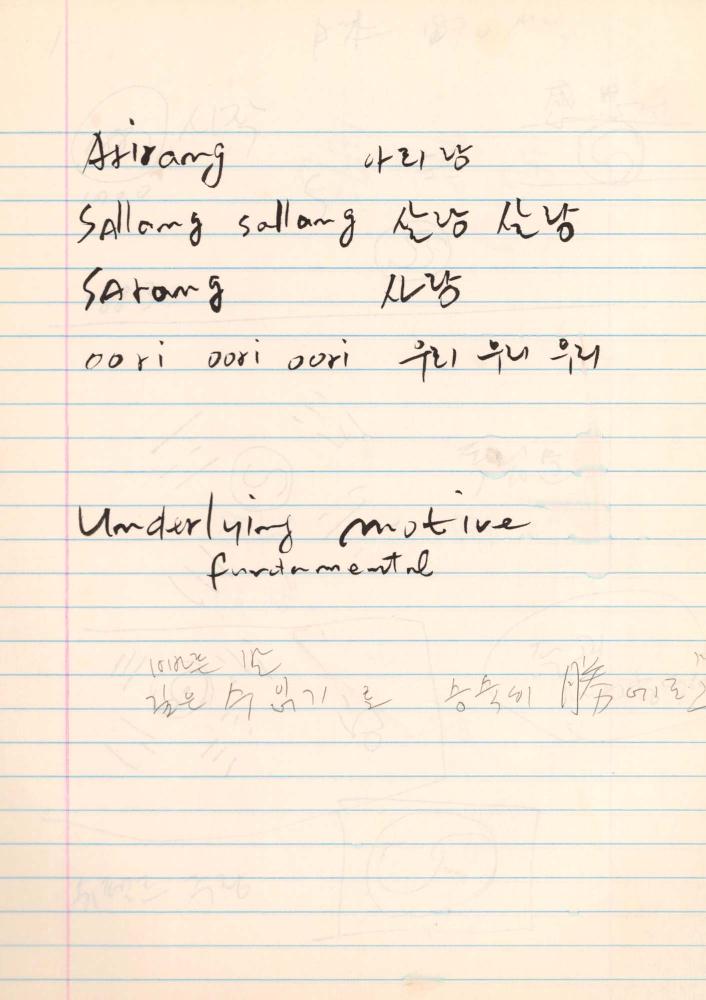 Arirang 아리랑
SAllang sallang 살랑 살랑
SArang 사랑
oori oori oori 우리 우리 우리
Underlying motive
fundamental
깊은 수 읽기 로 승숙이 勝 에로